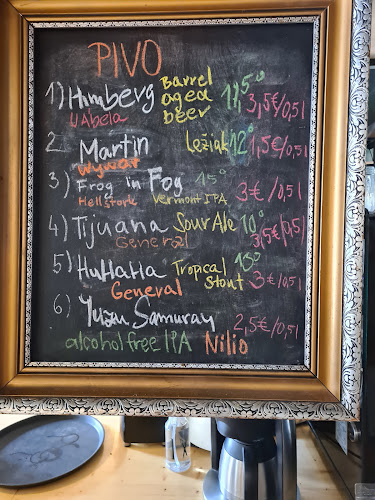 PIVO
1) Humberg Barrel aged beer 11,5° 3,5€/0,5l
U Ábela
2 Martin Ležiak 12° 1,5€/0,5l
Wywar
3) Frog in Fog 15° 3€/0,5l
Hellstork Vermont IPA
4) Tijuana Sour Ale 10° 3,5€/0,5l
General
5) HuHaHa Tropical Stout 13° 3€/0,5l
General
6) Yuzu Samuray 2,5€/0,5l
alcohol free IPA Nilio